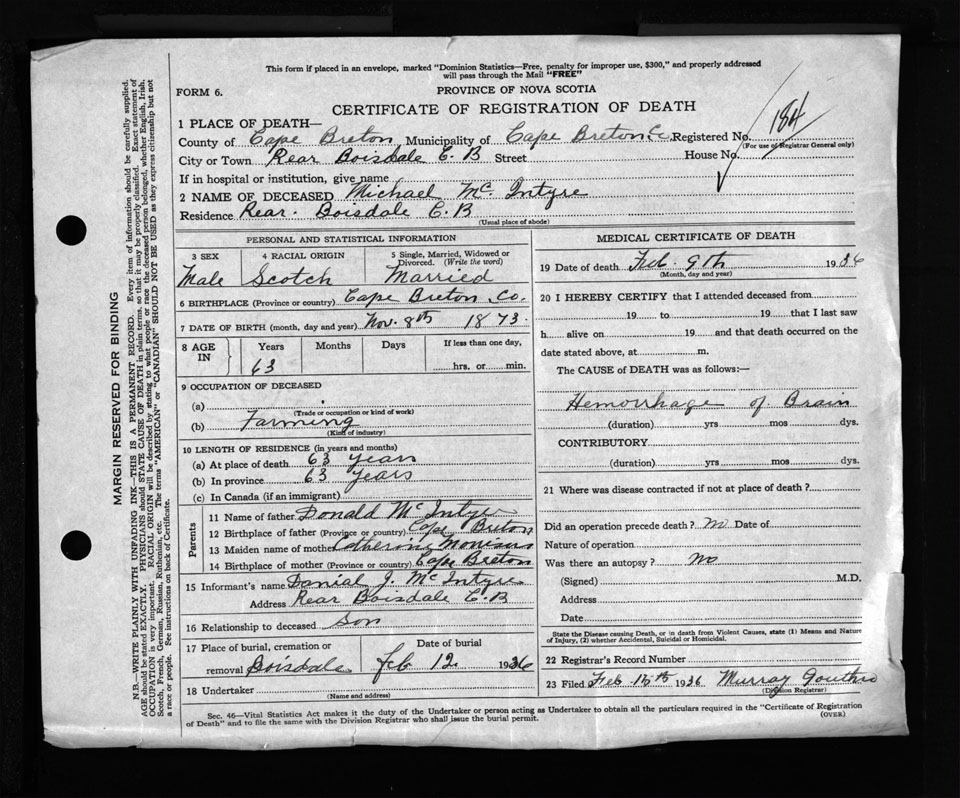 This form if placed in an envelope, marked "Dominion Statistics—Free, penalty for improper use, $300," and properly addressed
will pass through the Mail "FREE"
FORM 6.
PROVINCE OF NOVA SCOTIA
CERTIFICATE OF REGISTRATION OF DEATH
1 PLACE OF DEATH—
County of Cape Breton Municipality of Cape Breton Co. Registered No. 184
(For use of Registrar General only)
City or Town Rear Boisdale C. B Street House No.
If in hospital or institution, give name
2 NAME OF DECEASED Michael Mc. Intyre
Residence Rear. Boisdale C. B
(Usual place of abode)
PERSONAL AND STATISTICAL INFORMATION
3 SEX 4 RACIAL ORIGIN 5 Single, Married, Widowed or
Divorced. (Write the word)
Male Scotch Married
6 BIRTHPLACE (Province or country) Cape Breton Co.
7 DATE OF BIRTH (month, day and year) Nov. 8th 1873.
8 AGE IN Years Months Days If less than one day,
63 hrs. or min.
9 OCCUPATION OF DECEASED
(a)
(Trade or occupation or kind of work)
(b) Farming
(Kind of industry)
10 LENGTH OF RESIDENCE (in years and months)
(a) At place of death 63 years
(b) In province 63 years
(c) In Canada (if an immigrant)
Parents
11 Name of father Donald McIntyre
12 Birthplace of father (Province or country) Cape Breton
13 Maiden name of mother
14 Birthplace of mother (Province or country) Cape Breton
15 Informant's name Danial J. McIntyre
Address Rear Boisdale C. B
16 Relationship to deceased Son
17 Place of burial, cremation or Date of burial
removal Boisdale Feb 12 1936
18 Undertaker
(Name and address)
MEDICAL CERTIFICATE OF DEATH
19 Date of death Feb. 9th 1936
(Month, day and year)
20 I HEREBY CERTIFY that I attended deceased from
19 to 19 that I last saw
h alive on 19 and that death occurred on the
date stated above, at m.
The CAUSE of DEATH was as follows:—
Hemorrhage of Brain
(duration) yrs mos dys.
CONTRIBUTORY
(duration) yrs mos dys.
21 Where was disease contracted if not at place of death?
Did an operation precede death? no Date of
Nature of operation
Was there an autopsy? no
(Signed) M.D.
Address
Date
State the Disease causing Death, or in death from Violent Causes, state (1) Means and Nature
of Injury, (2) whether Accidental, Suicidal or Homicidal.
22 Registrar's Record Number
23 Filed Feb. 15th 1936 Murray
(Division Registrar)
Sec. 46—Vital Statistics Act makes it the duty of the Undertaker or person acting as Undertaker to obtain all the particulars required in the "Certificate of Registration
of Death" and to file the same with the Division Registrar who shall issue the burial permit.
(OVER)
MARGIN RESERVED FOR BINDING
N.B.—WRITE PLAINLY WITH UNFADING INK—THIS IS A PERMANENT RECORD. Every item of information should be carefully supplied.
AGE should be stated EXACTLY. PHYSICIANS should STATE CAUSE OF DEATH in plain terms, so that it may be properly classified. Exact statement of
OCCUPATION is very important. RACIAL ORIGIN will be described by stating to what people or race the deceased person belonged, whether English, Irish,
Scotch, French, German, Russian, Ruthenian, etc. The terms "AMERICAN" or "CANADIAN" SHOULD NOT BE USED as they express citizenship but not
a race or people. See instructions on back of Certificate.